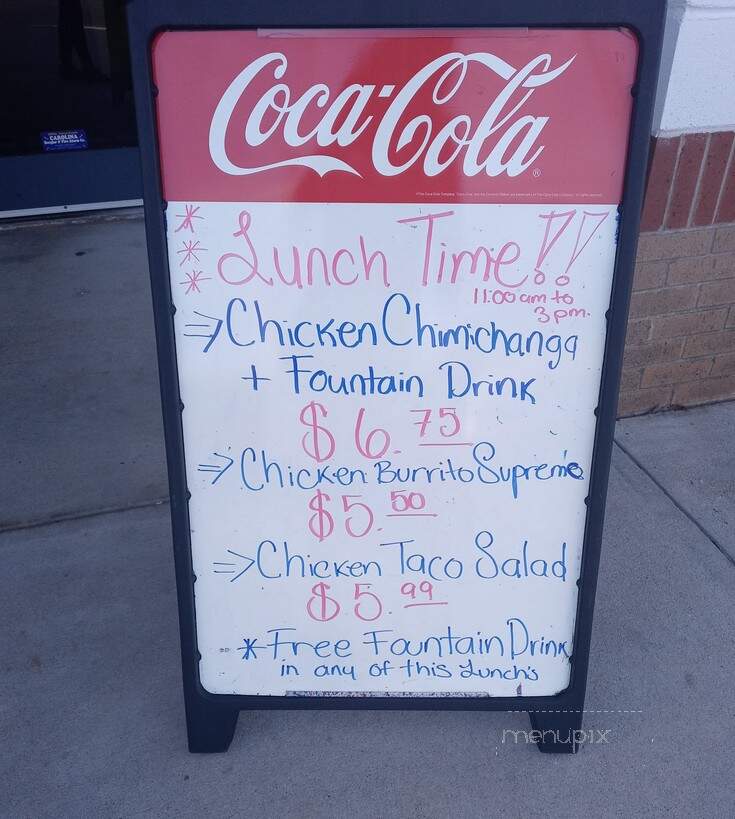 CAROLINA
Coca-Cola
* Lunch Time!!
*
*
11:00 am to
3 pm.
⇒ Chicken Chimichanga
+ Fountain Drink
$6.75
⇒ Chicken Burrito Supreme
$5.50
⇒ Chicken Taco Salad
$5.99
* Free Fountain Drink
in any of this Lunch's
menupix